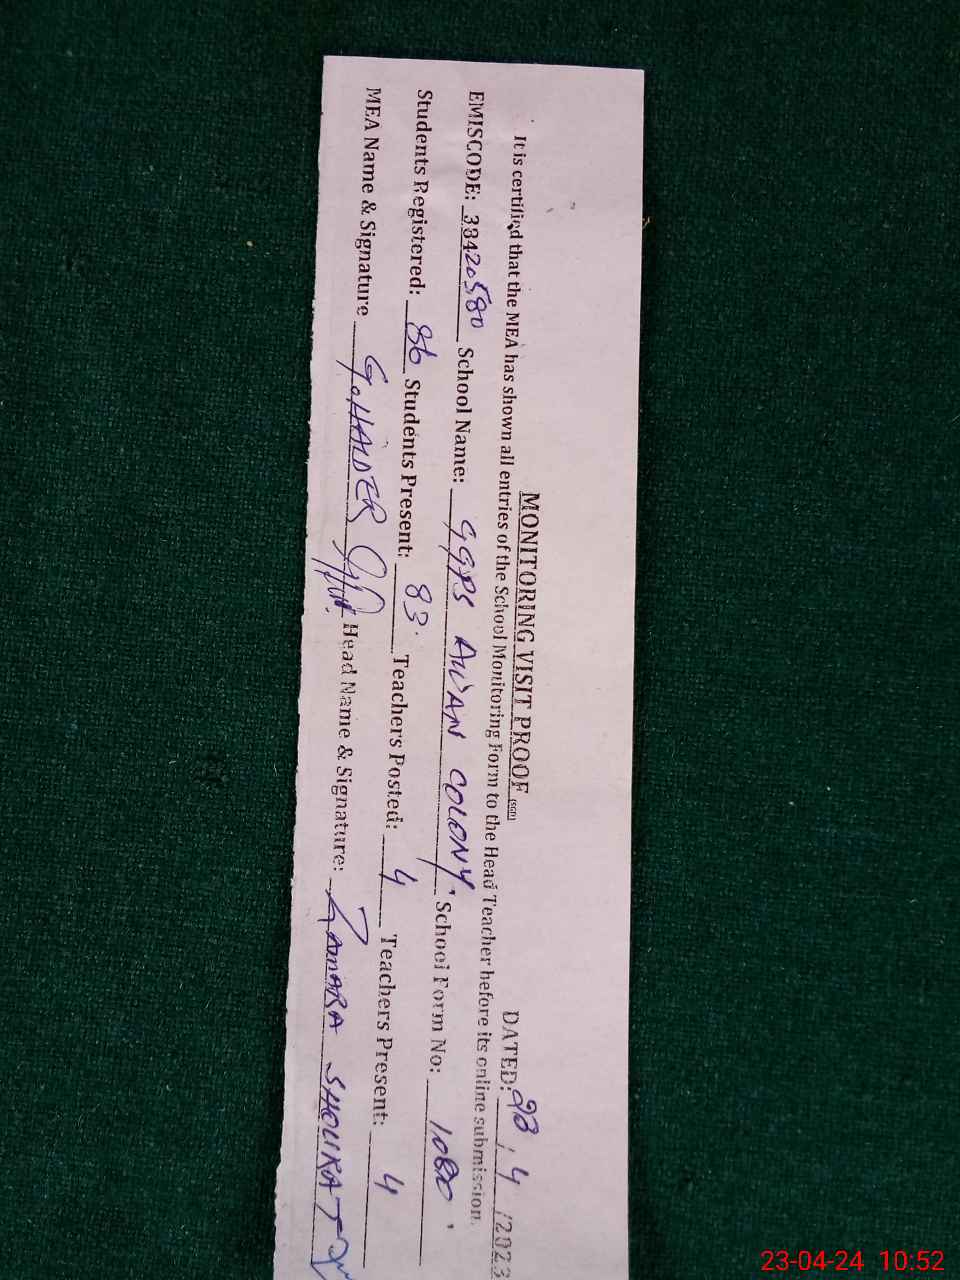 MONITORING VISIT PROOF (SGD)
DATED: 23 / 4 / 2023
It is certified that the MEA has shown all entries of the School Monitoring Form to the Head Teacher before its online submission.
EMISCODE: 38420580 School Name: GGPS AWAN COLONY. School Form No: 1080
Students Registered: 86 Students Present: 83 Teachers Posted: 4 Teachers Present: 4
MEA Name & Signature G.HAIDER Head Name & Signature: SHOUKAT
23-04-24 10:52